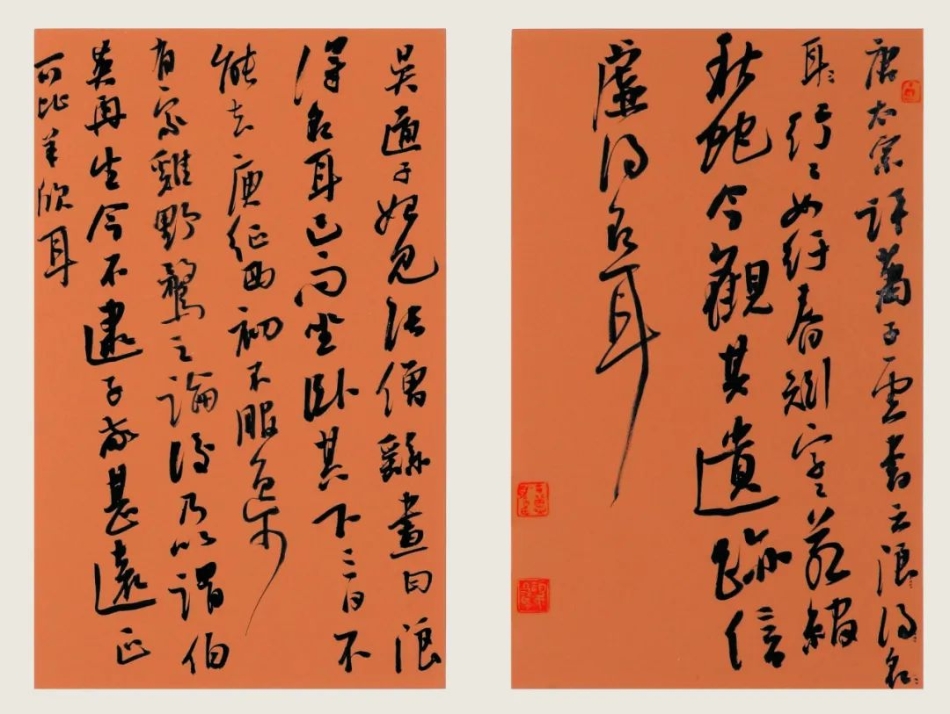 唐太宗評蕭子雲書云浪得名
耳行〻如紆春蚓字〻若綰
秋蛇今觀其遺跡信
虛得名耳
吳道子始見張僧繇畫曰浪
得名耳已而坐臥其下三日不
能去庾征西初不服逸少
有家雞野鶩之論後乃以謂伯
英再生今不逮子敬甚遠正
可比羊欣耳